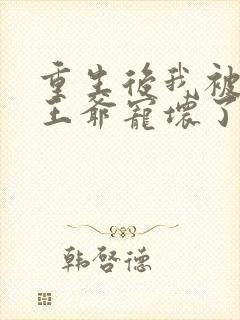 重生後我被
王爺寵壞了
韩啓德